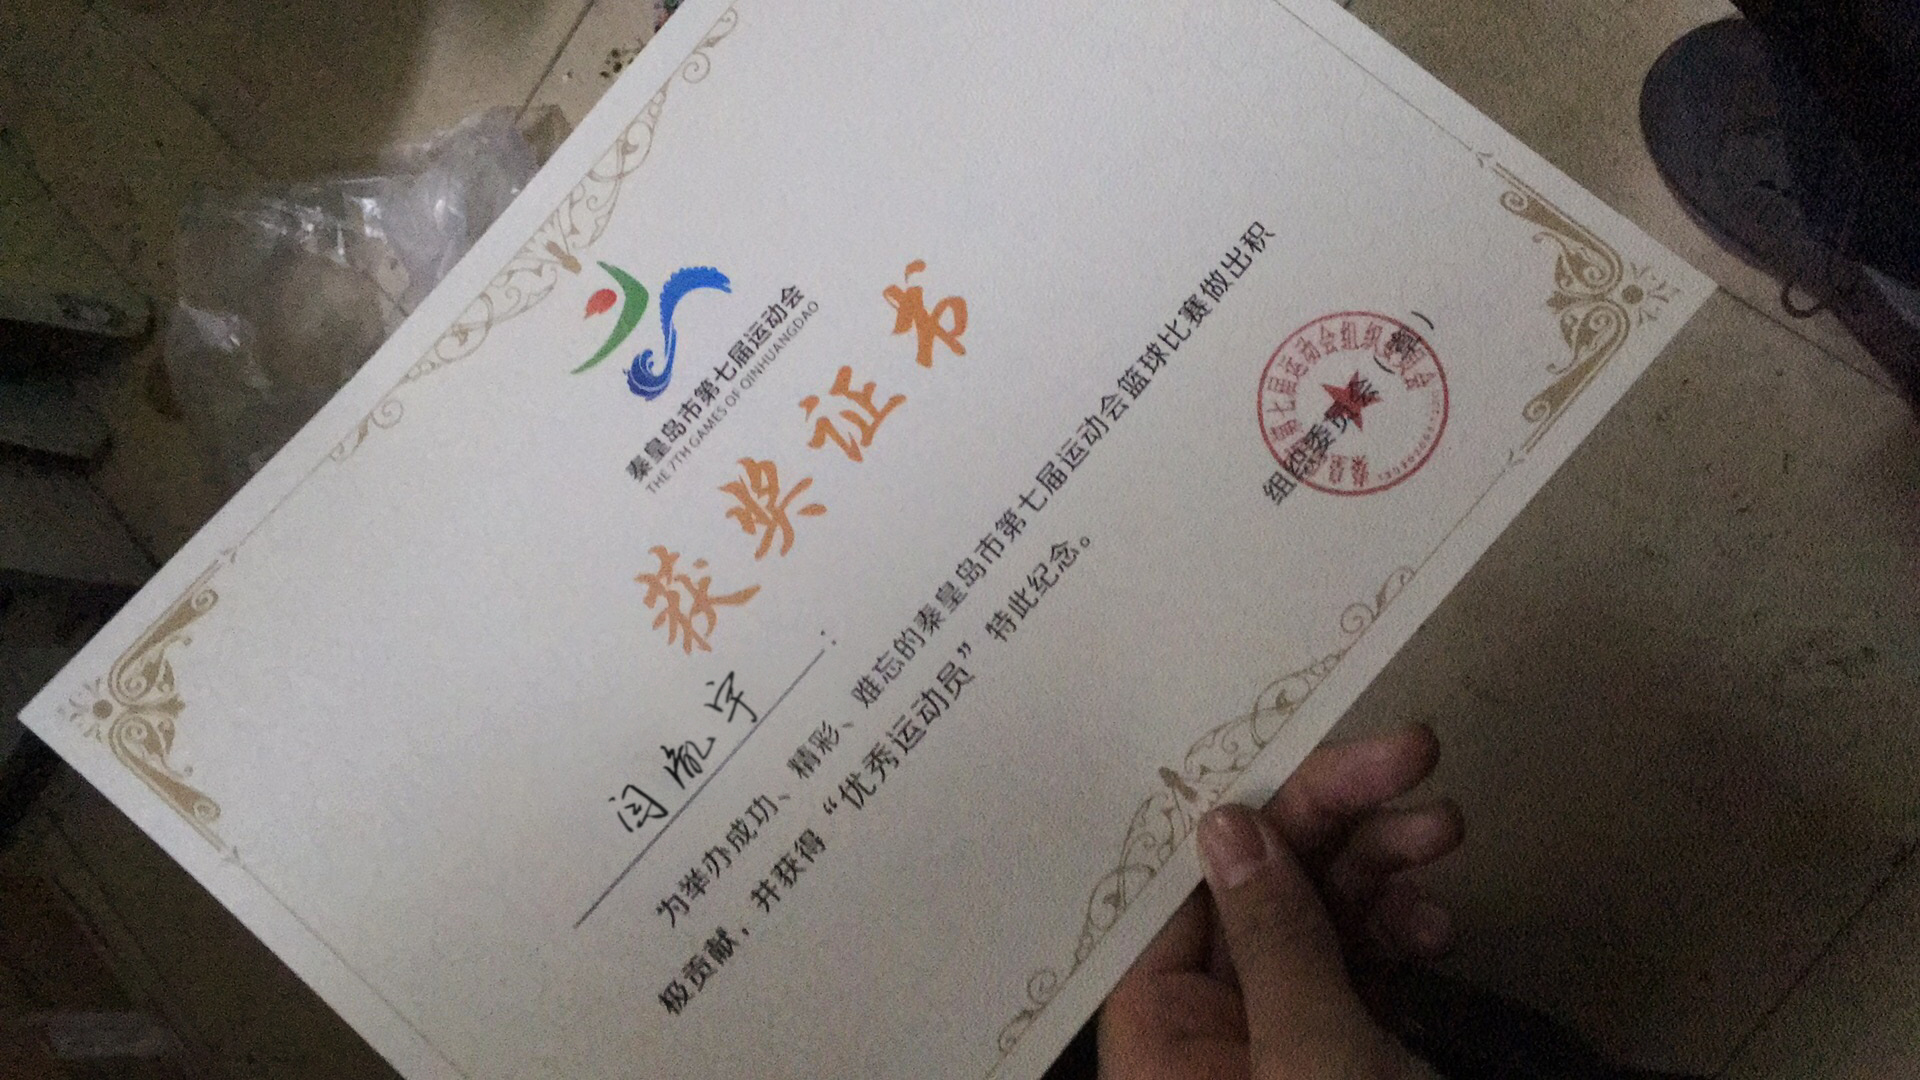 秦皇岛市第七届运动会
THE 7TH GAMES OF QINHUANGDAO
获奖证书
闫胤宇：
为举办成功、精彩、难忘的秦皇岛市第七届运动会篮球比赛做出积
极贡献，并获得“优秀运动员”特此纪念。
组织委员会（章）
第七届运动会组织委员会